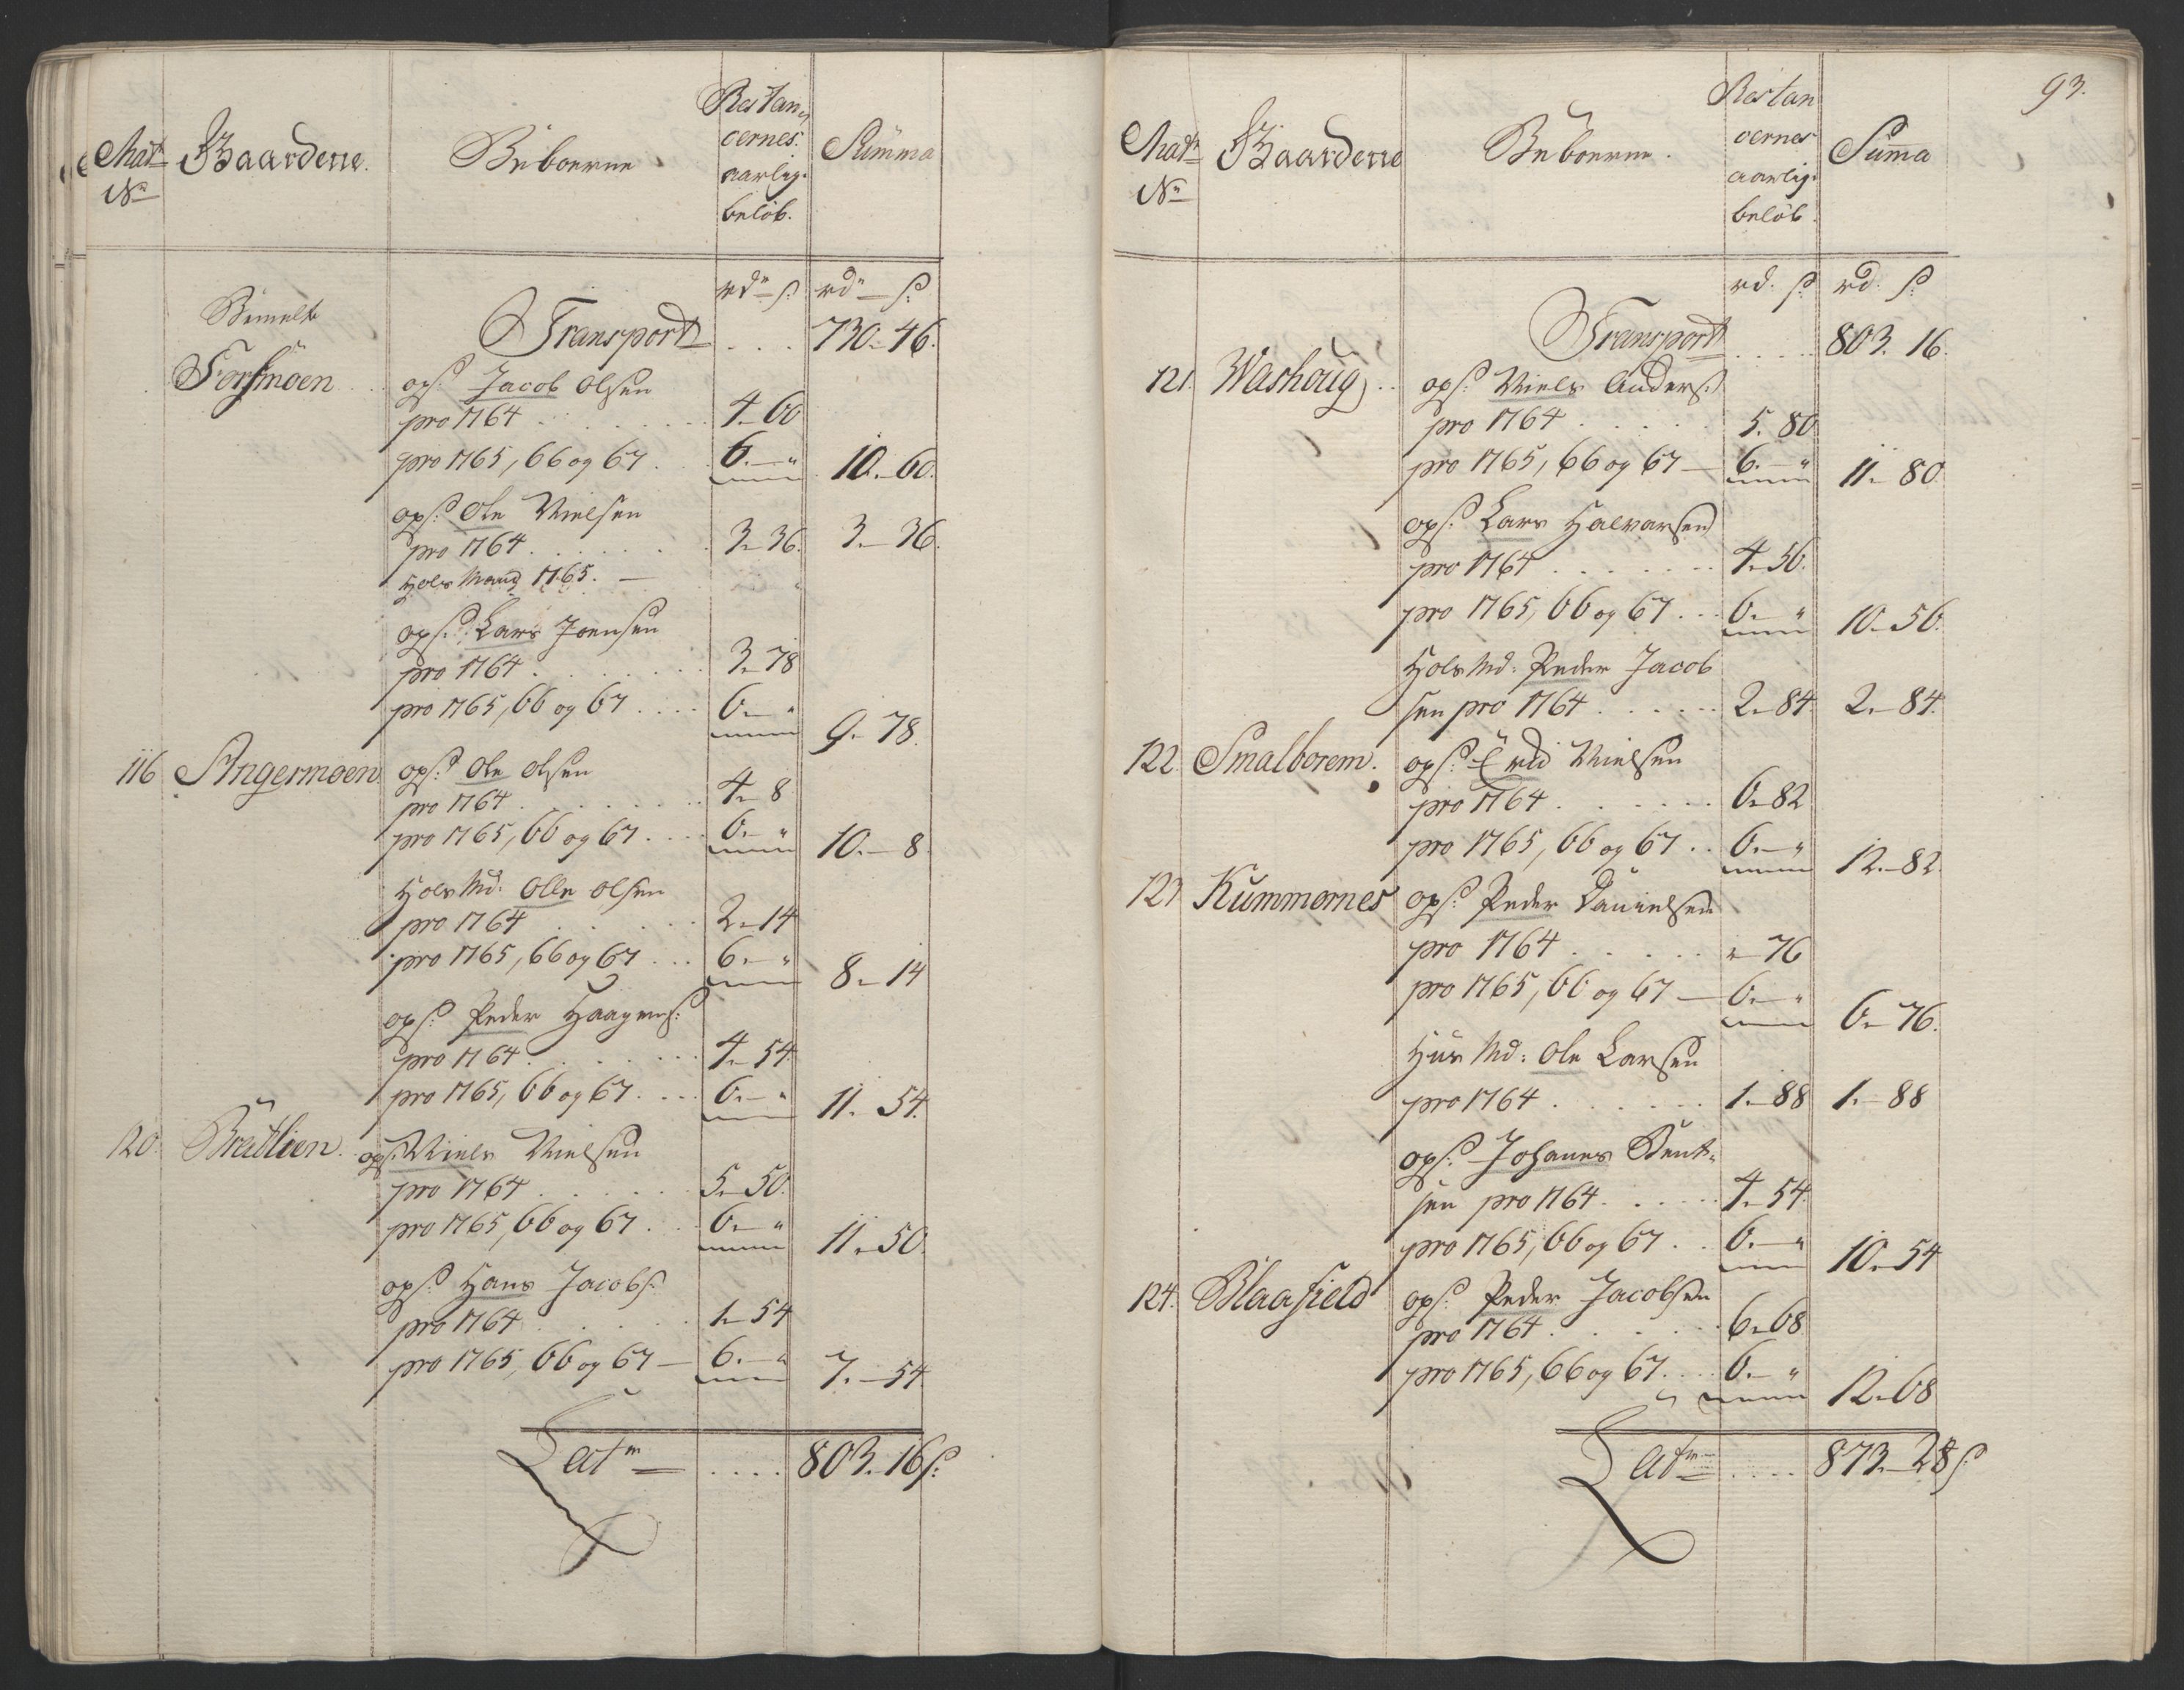 Mat: No Gaardene. Beboerne Restan, cernes. aarlig. beløb. Summa
rdr ß: rdr ß:
Bemelte
Transport . . . 730. 46.
Forsmoen . . ops: Jacob Olsen
pro 1764 . . . 4. 60
pro 1765, 66 og 67 . . 6. " 10. 60.
ops: Ole Nielsen
pro 1764 . . . 3. 36. 3. 36.
Hols Mand 1765. —
ops: Lars Joensen
pro 1764 . . . 3. 78
pro 1765, 66 og 67 . . . 6. " 9. 78.
116 Angermoen ops: Ole Olsen
pro 1764 . . . 4. 8
pro 1765, 66 og 67 . . . 6. " 10. 8.
Hols Md: Olle Olsen
pro 1764 . . . 2. 14
pro 1765, 66 og 67 . . . 6. " 8. 14
ops: Peder Haagens:
pro 1764 . . . 4. 54
pro 1765, 66 og 67 . . . 6. " 11. 54.
120. Bratlien. ops: Niels Nielsen
pro 1764 . . . 5. 50.
pro 1765, 66 og 67 . . . 6. " 11. 50.
ops: Hans Jacobs:
pro 1764 . . . 1. 54
pro 1765, 66 og 67 — 6. " 7. 54
Latr . . . . 803. 16 ß:
93.
Matr No Gaardene Beboerne. Restan cernes aarlig. beløb. Suma
rd. ß: rd. ß:
Transport . . . . 803. 16.
121. Washoug . . ops: Niels Anders:
pro 1764 . . . 5. 80
pro 1765, 66 og 67 — 6. " 11. 80
ops: Lars Halvarsen
pro 1764 . . . 4. 56.
pro 1765, 66 og 67 . . . 6. " 10. 56.
Hols Md: Peder Jacob
sen pro 1764 . . . 2. 84. 2. 84.
122. Smalborem. ops: Nielsen
pro 1764 . . . 6. 82
pro 1765, 66 og 67 . . 6. " 12. 82.
123 Kummernes ops: Peder Danielsen
pro 1764 . . . " 76
pro 1765, 66 og 67 — 6. " 6. 76.
Huus Md: Ole Larsen
pro 1764 . . . 1. 88 1. 88
ops: Johanes Bent-
sen pro 1764 . . . 4. 54.
pro 1765, 66 og 67 . . 6. " 10. 54
124. Blaafield ops: Peder Jacobsen
pro 1764 . . . 6. 68
pro 1765, 66 og 67 . . . 6. " 12. 68
Latr . . . . 873. 28 ß